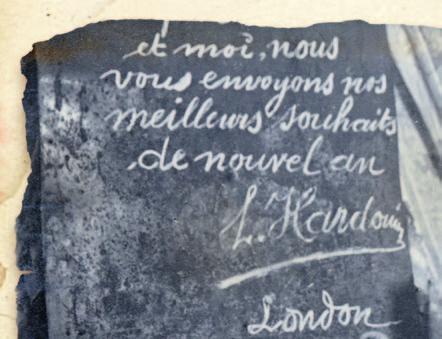 et moi, nous
vous envoyons nos
meilleurs souhaits
de nouvel an
L. Hardouin
London